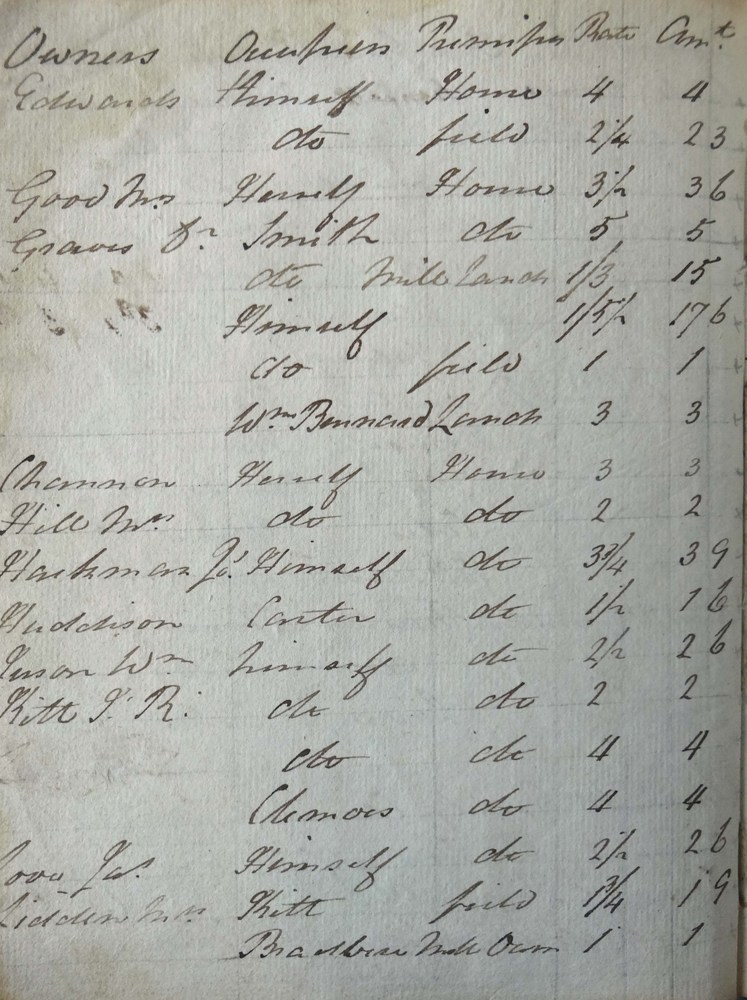 Owners Occupiers Premises Rate Amt.
Edwards Himself House 4 4
do field 2 1/4 2 3
Good Mrs Herself House 3 1/2 3 6
Graves Dr. Smith do 5 5
do Mill Land 1/3 15
Himself 1/5 1/2 17 6
do field 1 1
Wm Bennard Land 3 3
Channon Herself House 3 3
Hill Mrs do do 2 2
Hackman Jas. Himself do 3 3/4 3 9
Huddison Carter do 1 1/2 1 6
Wm himself do 2 1/2 2 6
Kitt do do 2 2
do do 4 4
do 4 4
Jas. Himself do 2 1/2 2 6
Mrs Kitt field 1 3/4 1 9
1 1